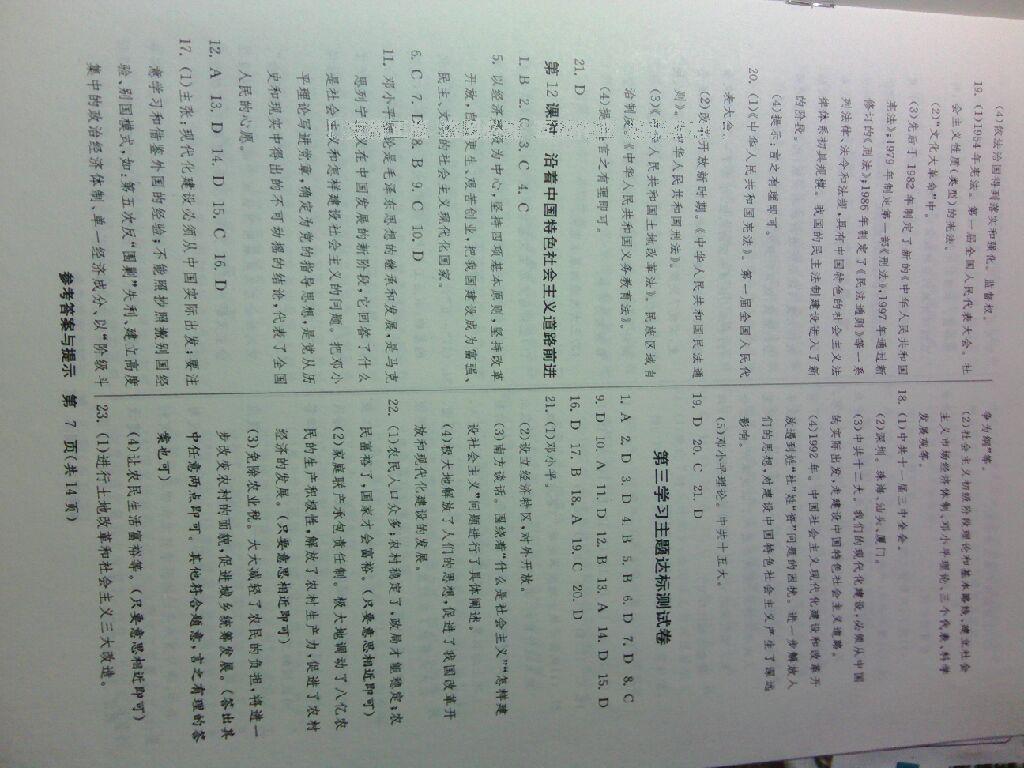 (4)依法治国得到落实和强化。监督权。
19. (1)1954年宪法。第一届全国人民代表大会。社
会主义性质(类型)的宪法。
(2)“文化大革命”中。
(3)先后于1982年制定了新的《中华人民共和国
宪法》;1979年制定第一部《刑法》,1997年通过新
修订的《刑法》;1986年制定了《民法通则》等一系
列法律、法令和法规,具有中国特色的社会主义法
律体系初具规模。我国的民主法制建设进入了新
的阶段。
(4)提示:言之有理即可。
20. (1)《中华人民共和国宪法》。第一届全国人民代
表大会。
(2)改革开放新时期。《中华人民共和国民法通
则》。《中华人民共和国刑法》。
(3)《中华人民共和国土地改革法》。民族区域自
治制度。《中华人民共和国义务教育法》。
(4)提示:言之有理即可。
21. D
第12课时 沿着中国特色社会主义道路前进
1. B 2. C 3. C 4. C
5. 以经济建设为中心,坚持四项基本原则,坚持改革
开放,自力更生、艰苦创业,把我国建设成为富强、
民主、文明的社会主义现代化国家。
6. C 7. D 8. B 9. C 10. D
11. 邓小平理论是毛泽东思想的继承和发展,是马克
思列宁主义在中国发展的新阶段,它回答了什么
是社会主义和怎样建设社会主义的问题。把邓小
平理论写进党章,确定为党的指导思想,是党从历
史和现实中得出的不可动摇的结论,代表了全国
人民的心愿。
12. A 13. D 14. D 15. C 16. D
17. (1)主张:现代化建设必须从中国实际出发;要注
意学习和借鉴外国的经验;不能照抄照搬别国经
验、别国模式。如:第五次反“围剿”失利、建立高度
集中的政治经济体制、单一经济成分、以“阶级斗
争为纲”等。
(2)社会主义初级阶段理论和基本路线、建立社会
主义市场经济体制、邓小平理论、三个代表、科学
发展观等。
18. (1)中共十一届三中全会。
(2)深圳、珠海、汕头、厦门。
(3)中共十二大。我们的现代化建设,必须从中国
的实际出发,走建设中国特色社会主义道路。
(4)1992年。中国社会主义现代化建设和改革开
放遇到姓“社”姓“资”问题的困扰。进一步解放人
们的思想,对建设中国特色社会主义产生了深远
影响。
(5)邓小平理论。中共十五大。
19. D 20. C 21. D
第三学习主题达标测试卷
1. A 2. D 3. D 4. B 5. B 6. D 7. D 8. C
9. D 10. A 11. D 12. B 13. A 14. D 15. D
16. D 17. B 18. A 19. C 20. D
21. (1)邓小平。
(2)设立经济特区,对外开放。
(3)南方谈话。围绕着“什么是社会主义”“怎样建
设社会主义”问题进行了具体阐述。
(4)极大地解放了人们的思想,促进了我国改革开
放和现代化建设的发展。
22. (1)农民人口众多;农村稳定了,政局才能稳定;农
民富裕了,国家才会富裕。(只要意思相近即可)
(2)家庭联产承包责任制。极大地调动了八亿农
民的生产积极性,解放了农村生产力,促进了农村
经济的发展。(只要意思相近即可)
(3)免除农业税。大大减轻了农民的负担,将进一
步改变农村的面貌,促进城乡统筹发展。(答出其
中任意两点即可。其他符合题意,言之有理的答
案也可)
(4)让农民生活富裕等。(只要意思相近即可)
23. (1)进行土地改革和社会主义三大改造。
参考答案与提示 第 7 页(共14页)